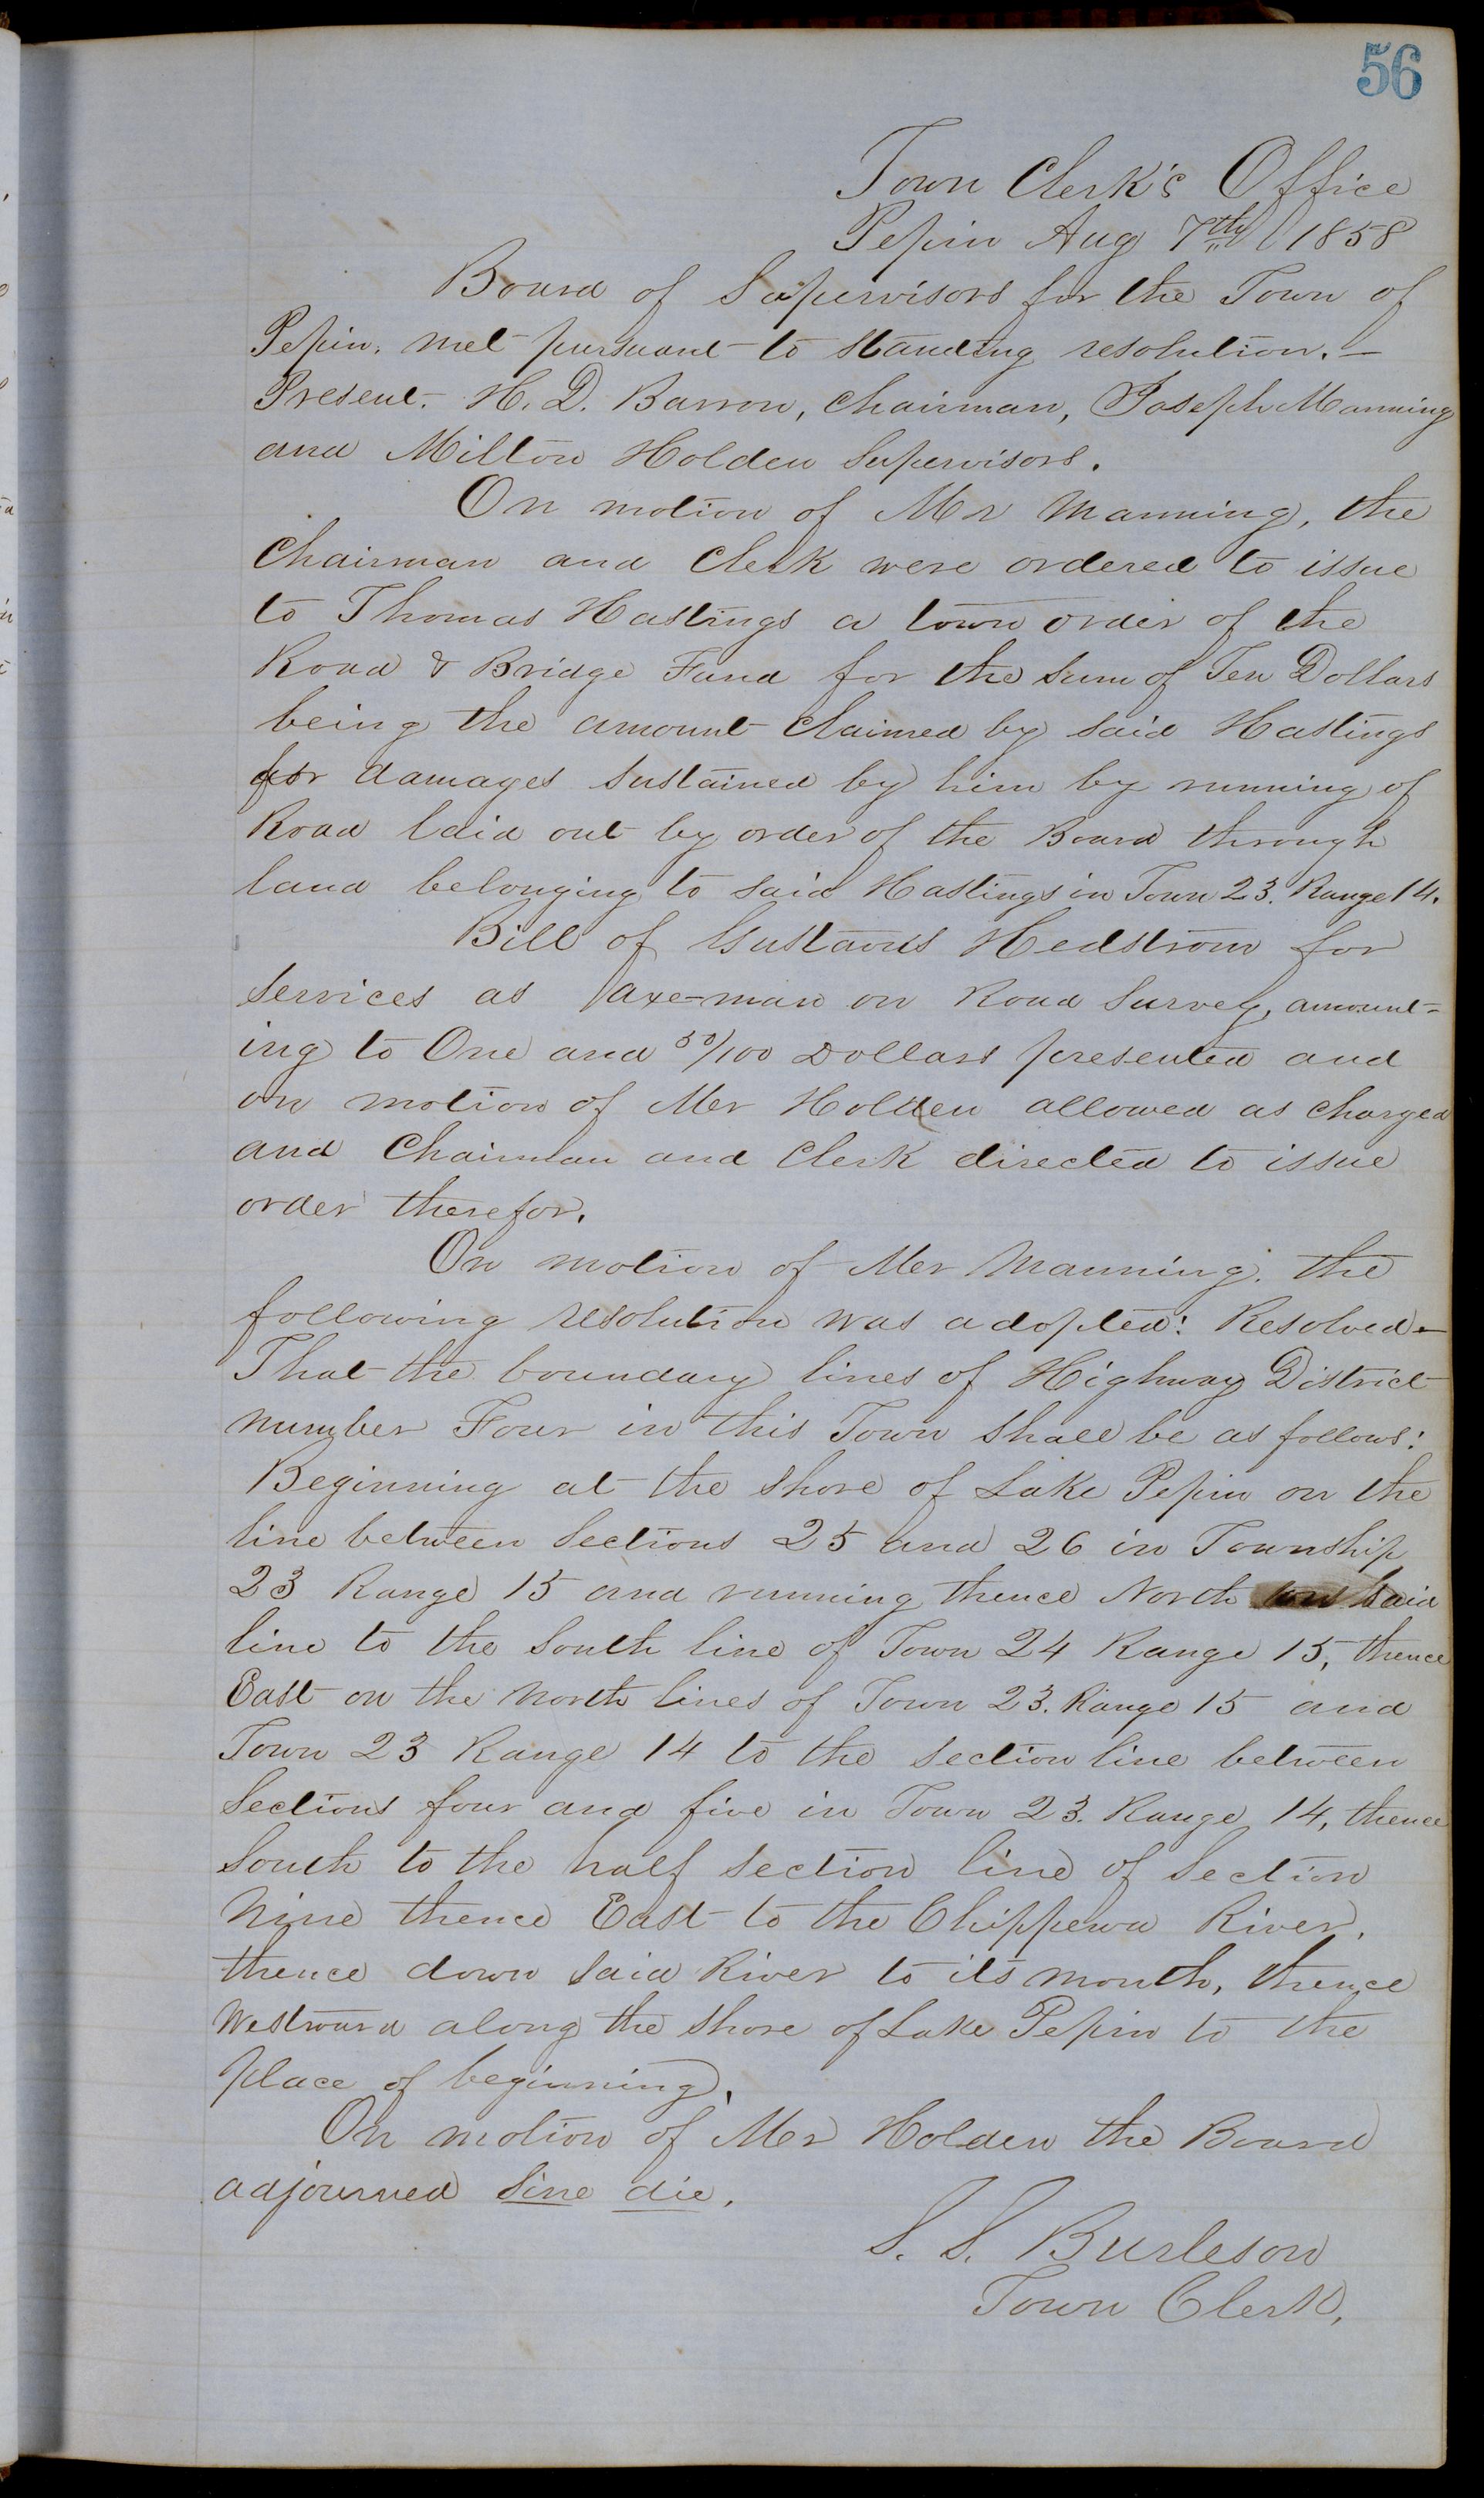 56
Town Clerk's Office
Pepin Aug 7th 1858
Board of Supervisors for the Town of
Pepin. met pursuant to standing resolution. —
Present. H. D. Barron, Chairman, Joseph Manning
and Milton Holden Supervisors.
On motion of Mr Manning, the
Chairman and Clerk were ordered to issue
to Thomas Hastings a town order of the
Road & Bridge Fund for the sum of Ten Dollars
being the amount claimed by said Hastings
for damages sustained by him by running of
Road laid out by order of the Board through
land belonging to said Hastings in Town 23. Range 14.
Bill of Gustavus Hedstrom for
services as axe-man on Road Survey, amount-
ing to One and 50/100 Dollars presented and
on motion of Mr Holden allowed as charged
and Chairman and Clerk directed to issue
order therefor.
On motion of Mr Manning. the
following resolution was adopted: Resolved—
That the boundary lines of Highway District
number Four in this Town shall be as follows:
Beginning at the shore of Lake Pepin on the
line between Sections 25 and 26 in Township
23 Range 15 and running thence North said
line to the South line of Town 24 Range 15, thence
East on the North lines of Town 23. Range 15 and
Town 23 Range 14 to the section line between
Sections four and five in Town 23. Range 14, thence
South to the half section line of Section
Nine thence East to the Chippewa River,
thence down said River to its mouth, thence
Westward along the shore of Lake Pepin to the
place of beginning.
On motion of Mr Holden the Board
adjourned sine die.
S. S. Burleson
Town Clerk,